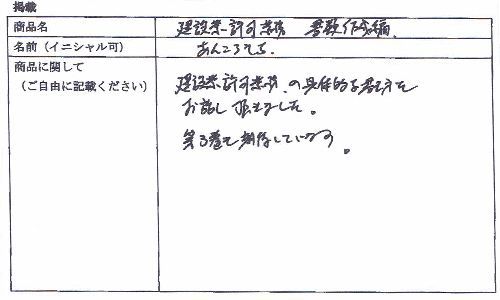 掲載
商品名
建設業許可業務 書類作成編.
名前（イニシャル可）
あんころもち.
商品に関して
（ご自由に記載ください）
建設業許可業務の具体的な考え方を
お話し頂きました。
第3巻も期待しています。